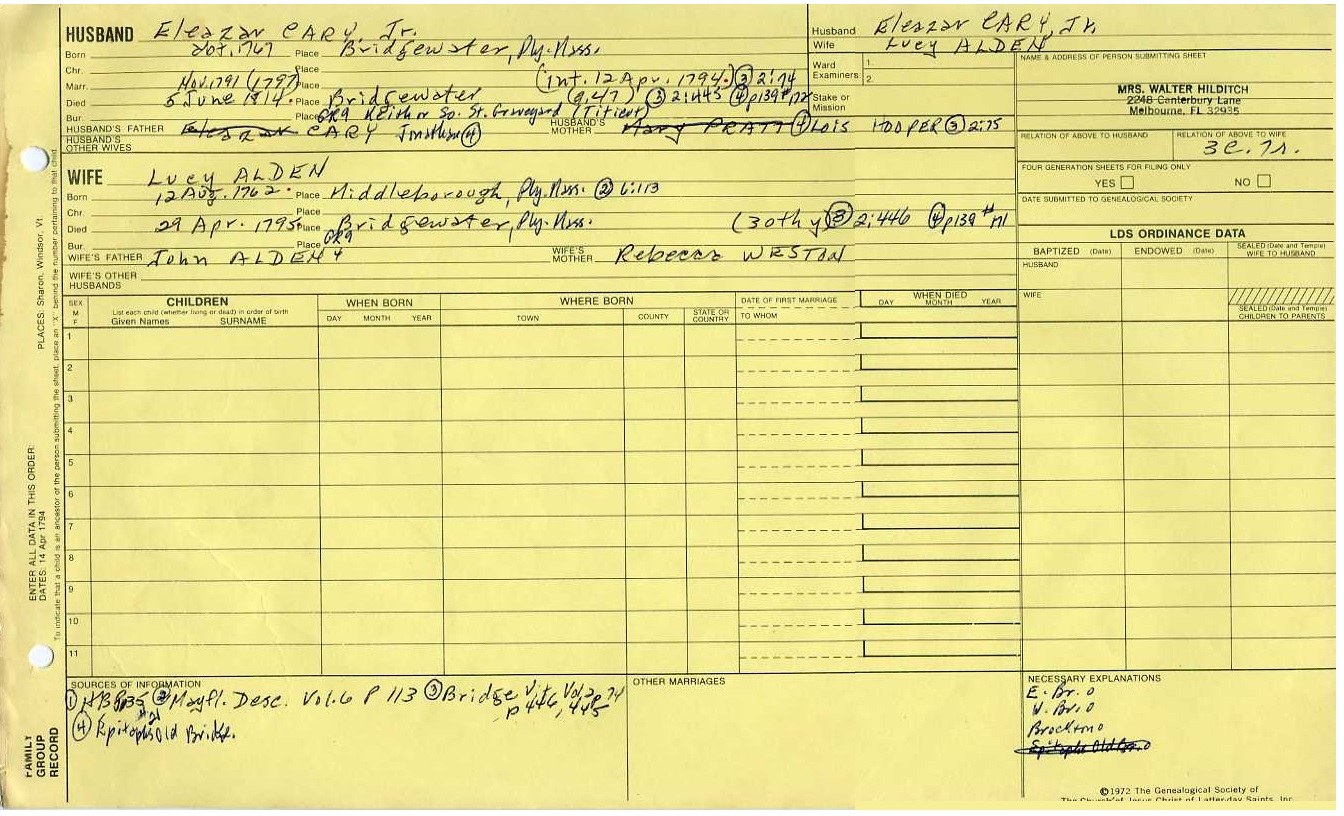 HUSBAND Eleazar CARY, Jr.
Born abt. 1767 Place Bridgewater, Ply. Mass.
Chr. Place
Marr. Nov. 1791 (1797) Place (int. 12 Apr. 1794.) ③ 2:74
Died 5 June 1814. Place Bridgewater (9,47) ③ 2:445 ④ p139 #172
Bur. Place GR9 Keith or So. St. Graveyard (Titicut)
HUSBAND'S FATHER Eleazar CARY Jonathan ④ HUSBAND'S MOTHER Mary PRATT ④ Lois HOOPER ③ 2:75
HUSBAND'S OTHER WIVES
WIFE Lucy ALDEN
Born 12 Aug. 1762. Place Middleborough, Ply. Mass. ② 6:113
Chr. Place
Died 29 Apr. 1795 Place Bridgewater, Ply. Mass. (30th y) ③ 2:446 ④ p139 #171
Bur. Place GR9
WIFE'S FATHER John ALDEN 4 WIFE'S MOTHER Rebecca WESTON
WIFE'S OTHER HUSBANDS
Husband Eleazar CARY, Jr.
Wife Lucy ALDEN
Ward 1.
Examiners: 2.
Stake or Mission
NAME & ADDRESS OF PERSON SUBMITTING SHEET
MRS. WALTER HILDITCH
2248 Canterbury Lane
Melbourne, FL 32935
RELATION OF ABOVE TO HUSBAND RELATION OF ABOVE TO WIFE
3c. 7r.
FOUR GENERATION SHEETS FOR FILING ONLY
YES NO
DATE SUBMITTED TO GENEALOGICAL SOCIETY
LDS ORDINANCE DATA
BAPTIZED (Date) ENDOWED (Date) SEALED (Date and Temple) WIFE TO HUSBAND
HUSBAND
WIFE
SEALED (Date and Temple) CHILDREN TO PARENTS
SEX M F CHILDREN WHEN BORN WHERE BORN DATE OF FIRST MARRIAGE WHEN DIED
List each child (whether living or dead) in order of birth
Given Names SURNAME DAY MONTH YEAR TOWN COUNTY STATE OR COUNTRY TO WHOM DAY MONTH YEAR
1
2
3
4
5
6
7
8
9
10
11
SOURCES OF INFORMATION
② Mayfl. Desc. Vol. 6 P 113 ③ Bridge Vit. Vol 2 p 74
p 446, 445
④ Epitaphs Old Bridge.
OTHER MARRIAGES
NECESSARY EXPLANATIONS
E. Br. 0
W. Br. 0
Brockton 0
Epitaphs Old Br. 0
©1972 The Genealogical Society of
The Church of Jesus Christ of Latter-day Saints, Inc.
PLACES: Sharon, Windsor, Vt.
To indicate that a child is an ancestor of the person submitting the sheet, place an "X" behind the number pertaining to that child.
ENTER ALL DATA IN THIS ORDER:
DATES: 14 Apr 1794
FAMILY
GROUP
RECORD